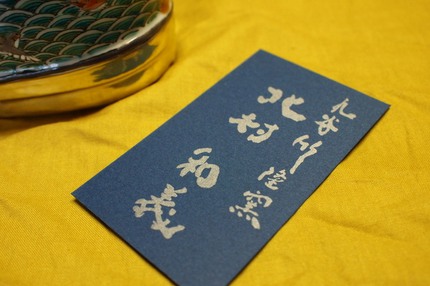 九谷竹隆窯
北村
和義